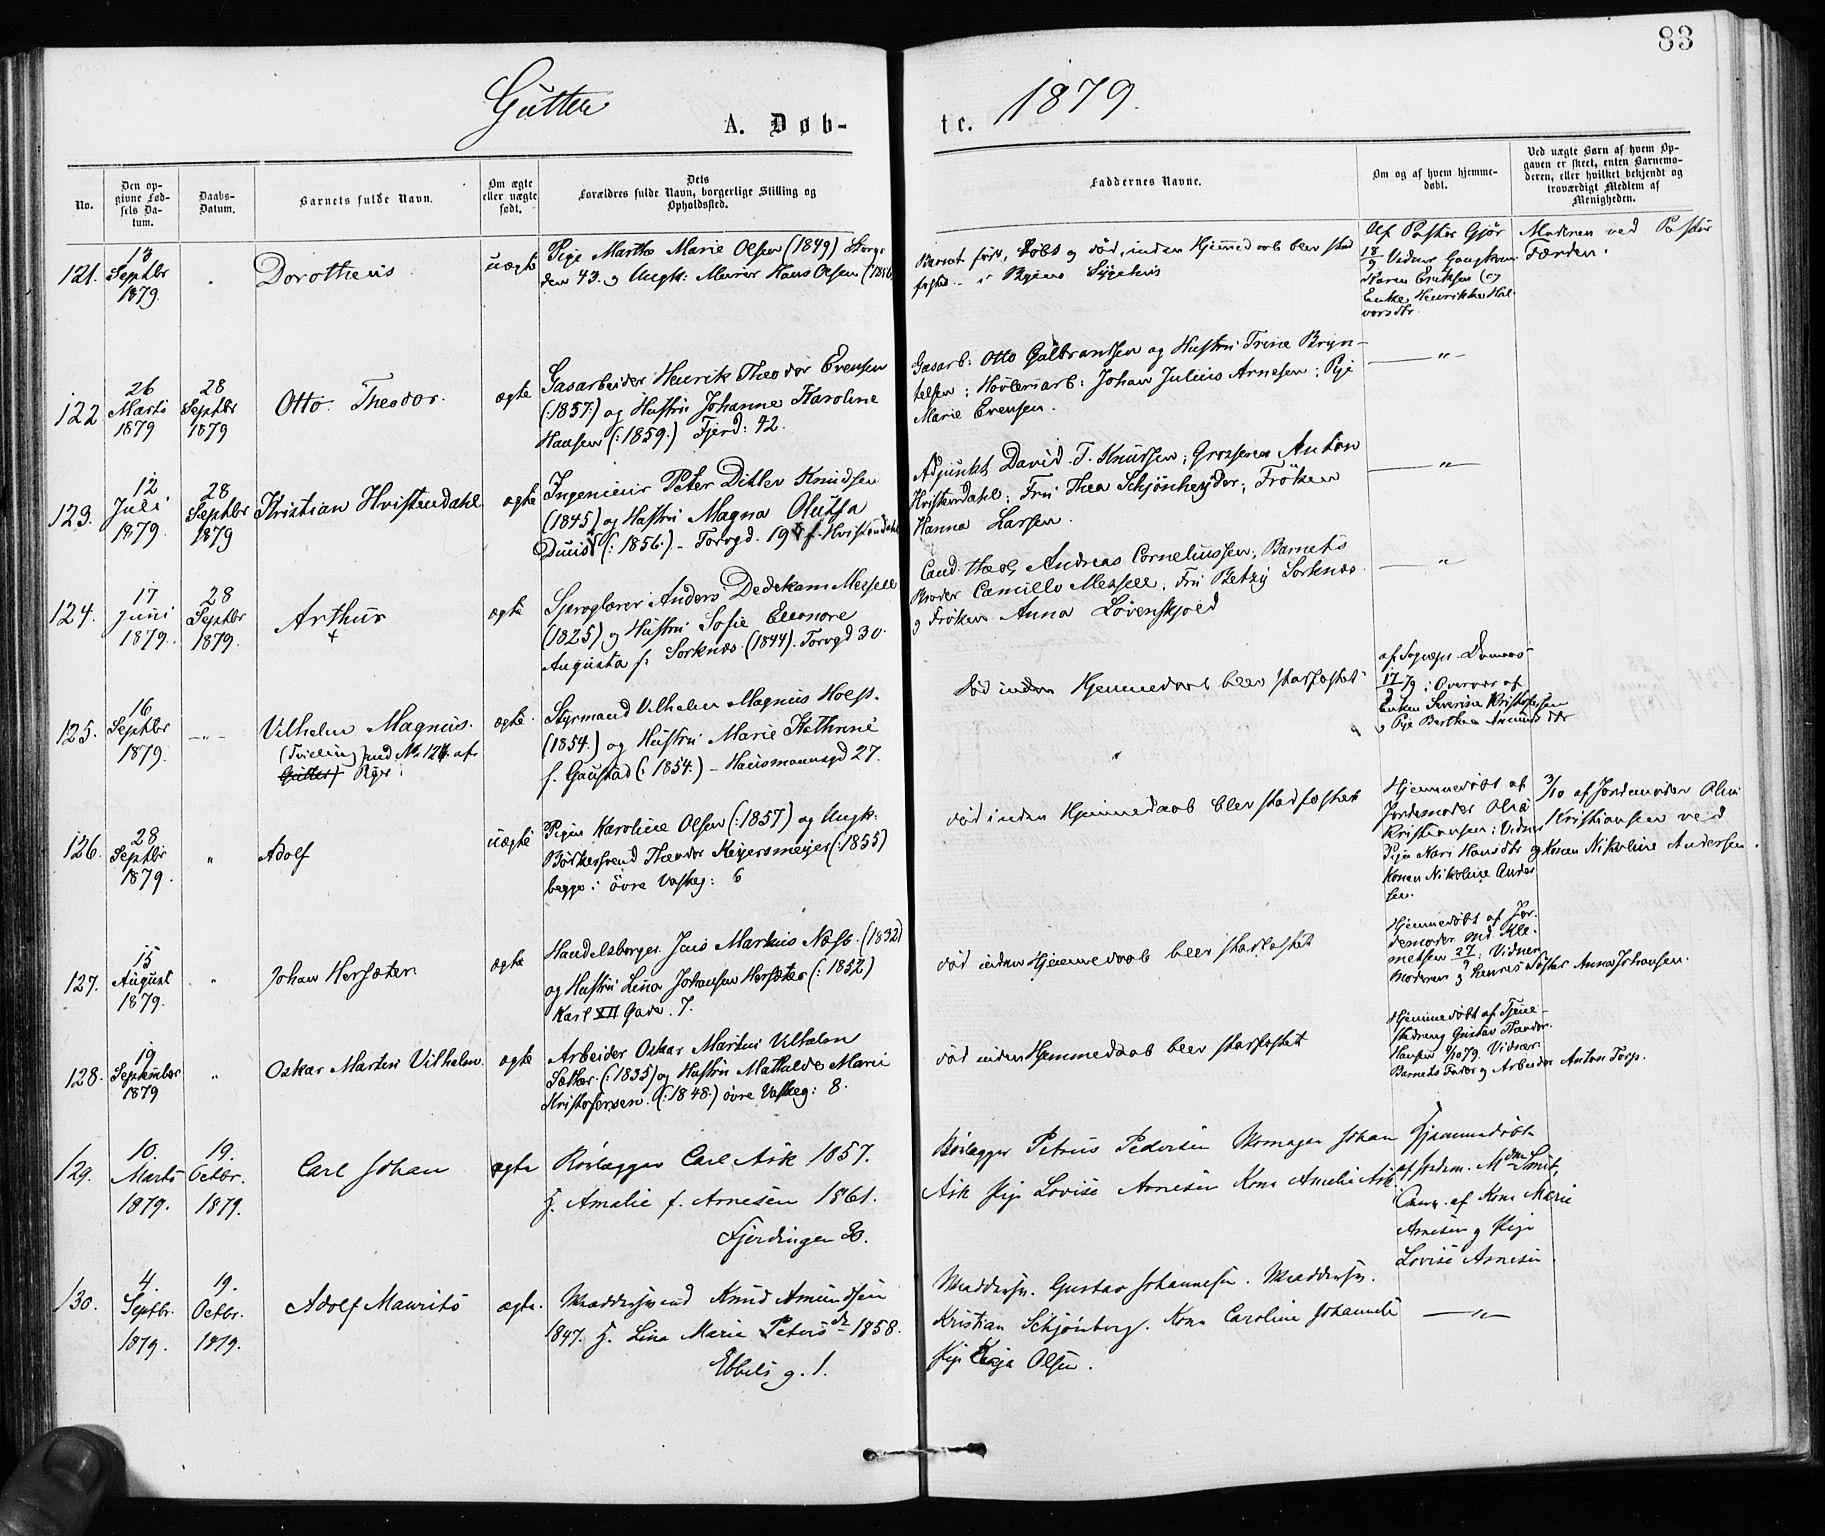 83
Gutter
1879.
A. Døb-
te.
No.
Den op-
givne Fød-
sels Da-
tum.
Daabs-
Datum.
Barnets fulde Navn.
Om ægte
eller uægte
født.
Dets
Forældres fulde Navn, borgerlige Stilling og
Opholdssted.
Faddernes Navne.
Om og af hvem hjemme-
døbt.
Ved uægte Børn af hvem Op-
gaven er skeet, enten Barnemo-
deren, eller hvilket bekjendt og
troværdigt Medlem af
Menigheden.
121.
13
Septbr
1879
Dorotheus
uægte
Pige Marthe Marie Olsen (1849) Storga
den 43. og Ungk: Murer Hans Olsen (1856
Barnet født, døbt og død, inden Hjemmedaab blev stad
fæstet – i Byens Sygehus
Af Pastor Gjør
18/9 Vidner Gangkone
Karen Eriksen og
Enke Henrikke Hal-
vorsdtr.
Moderen ved Pastor
Færden.
122.
26
Marts
1879
28
Septbr
1879
Otto Theodor.
ægte
Gasarbeider Henrik Theodor Evensen
(:1857:) og Hustru Johanne Karoline
Hansen (:1859.) Fjerd: 42.
Gasarb: Otto Gulbrandsen og Hustru Trine Bryn-
telsen; Høvleriarb: Johan Julius Arnesen; Pige
Marie Evensen.
— " —
123.
12
Juli
1879.
28
Septbr
1879
Kristian Hvistendahl
ægte
Ingenieur Peter Ditlev Knudsen
(1845) og Hustru Magna Olufa
(:1856.) – Torvgd. 19 f. Hvistendahl
Adjunkt David T. Knudsen; Grosserer Anton
Hvistendahl; Fru Thea Schjønheyder; Frøken
Hanna Larsen.
— " —
124.
17
Juni
1879.
28
Septbr
1879.
Arthur
+
ægte
Anders Dedekam Mejdell
(1825) og Hustru Sofie Eleonore
Augusta f: Sorknæs (1844). Torvgd 30.
Cand. theol. Andreas Corneliussen; Barnets
Broder Camillo Mejdell; Fru Betzy Sorknæs
og Frøken Anna Løvenskjold
— " —
125.
16
Septbr
1879.
— " —
Vilhelm Magnus.
(Tvilling med No 124 af
Gutter) Piger:
ægte
Styrmand Vilhelm Magnus Holst.
(1854.) og Hustru Marie Kathrine
f. Gaustad (:1854.) – Hausmannsgd 27.
død inden Hjemmedaab blev stadfæstet
af Sognepr. Damås
17/9 79 i Overvær af
Enken Severine Kristofersen
og Pige Berthe Amundsdtr
126.
28
Septbr
1879.
"
Adolf
uægte
Pigen Karoline Olsen (:1857) og Ungk:
Bødkersvend Theodor Keyersmeyer (:1855)
begge i øvre Vaskeg: 6
død inden Hjemmedaab blev stadfæstet
Hjemmedøbt af
Jordemoder Olea
Kristiansen: Vidner
Pigen Kari Hansdtr og
Konen Nikoline Ander
sen.
3/10 af Jordemoder Olea
Kristiansen ved
Konen Nikoline Andersen.
127.
15
August
1879.
"
Johan Hersæter
ægte
Handelsborger Jens Markus Næss. (1832)
og Hustru Lina Johansen Hersæter (:1852)
Karl XII Gade. 7.
død inden Hjemmedaab blev stadfæstet
Hjemmedøbt af Jor-
demoder Md Kle-
metsen 27/9: Vidner
Moderen og hendes Søster Anna Johansen.
128.
19
September
1879
"
Oskar Martin Vilhelm.
ægte
Arbeider Oskar Martin Vilhelm
Sæther. (:1835) og Hustru Mathilde Marie
Kristofersen. (:1848.) øvre Vaskeg: 8.
død inden Hjemmedaab blev stadfæstet
Hjemmedøbt af Tjene-
stedreng Gustav Theodor
Hansen 9/10 79. Vidner
Barnets Fader og Arbeider Anton Torp.
129.
10.
Marts
1879.
19.
Octbr.
1879.
Carl Johan
ægte
Rørlægger Carl Ask 1857.
H. Amalie f. Arnesen 1861.
Fjerdingen 30.
Rørlægger Petrus Pedersen Skomager Johan
Ask Pige Lovise Arnesen Kone Amelie Ask.
Hjemmedøbt
af Jordem. Mdm Smit,
Overv. af Kone Marie
Arnesen og Pige
Lovise Arnesen
130.
4.
Septbr.
1879.
19.
Octbr.
1879.
Adolf Maurits
ægte.
Skræddersvend Knud Amundsen
1847. H. Lina Marie Petersdr 1858.
Ebbels g. 1.
Skræddersv. Gustav Johannesen. Skræddersv.
Kristian Schjønberg. Kone Caroline Johannes
Pige Olsen.
— " —